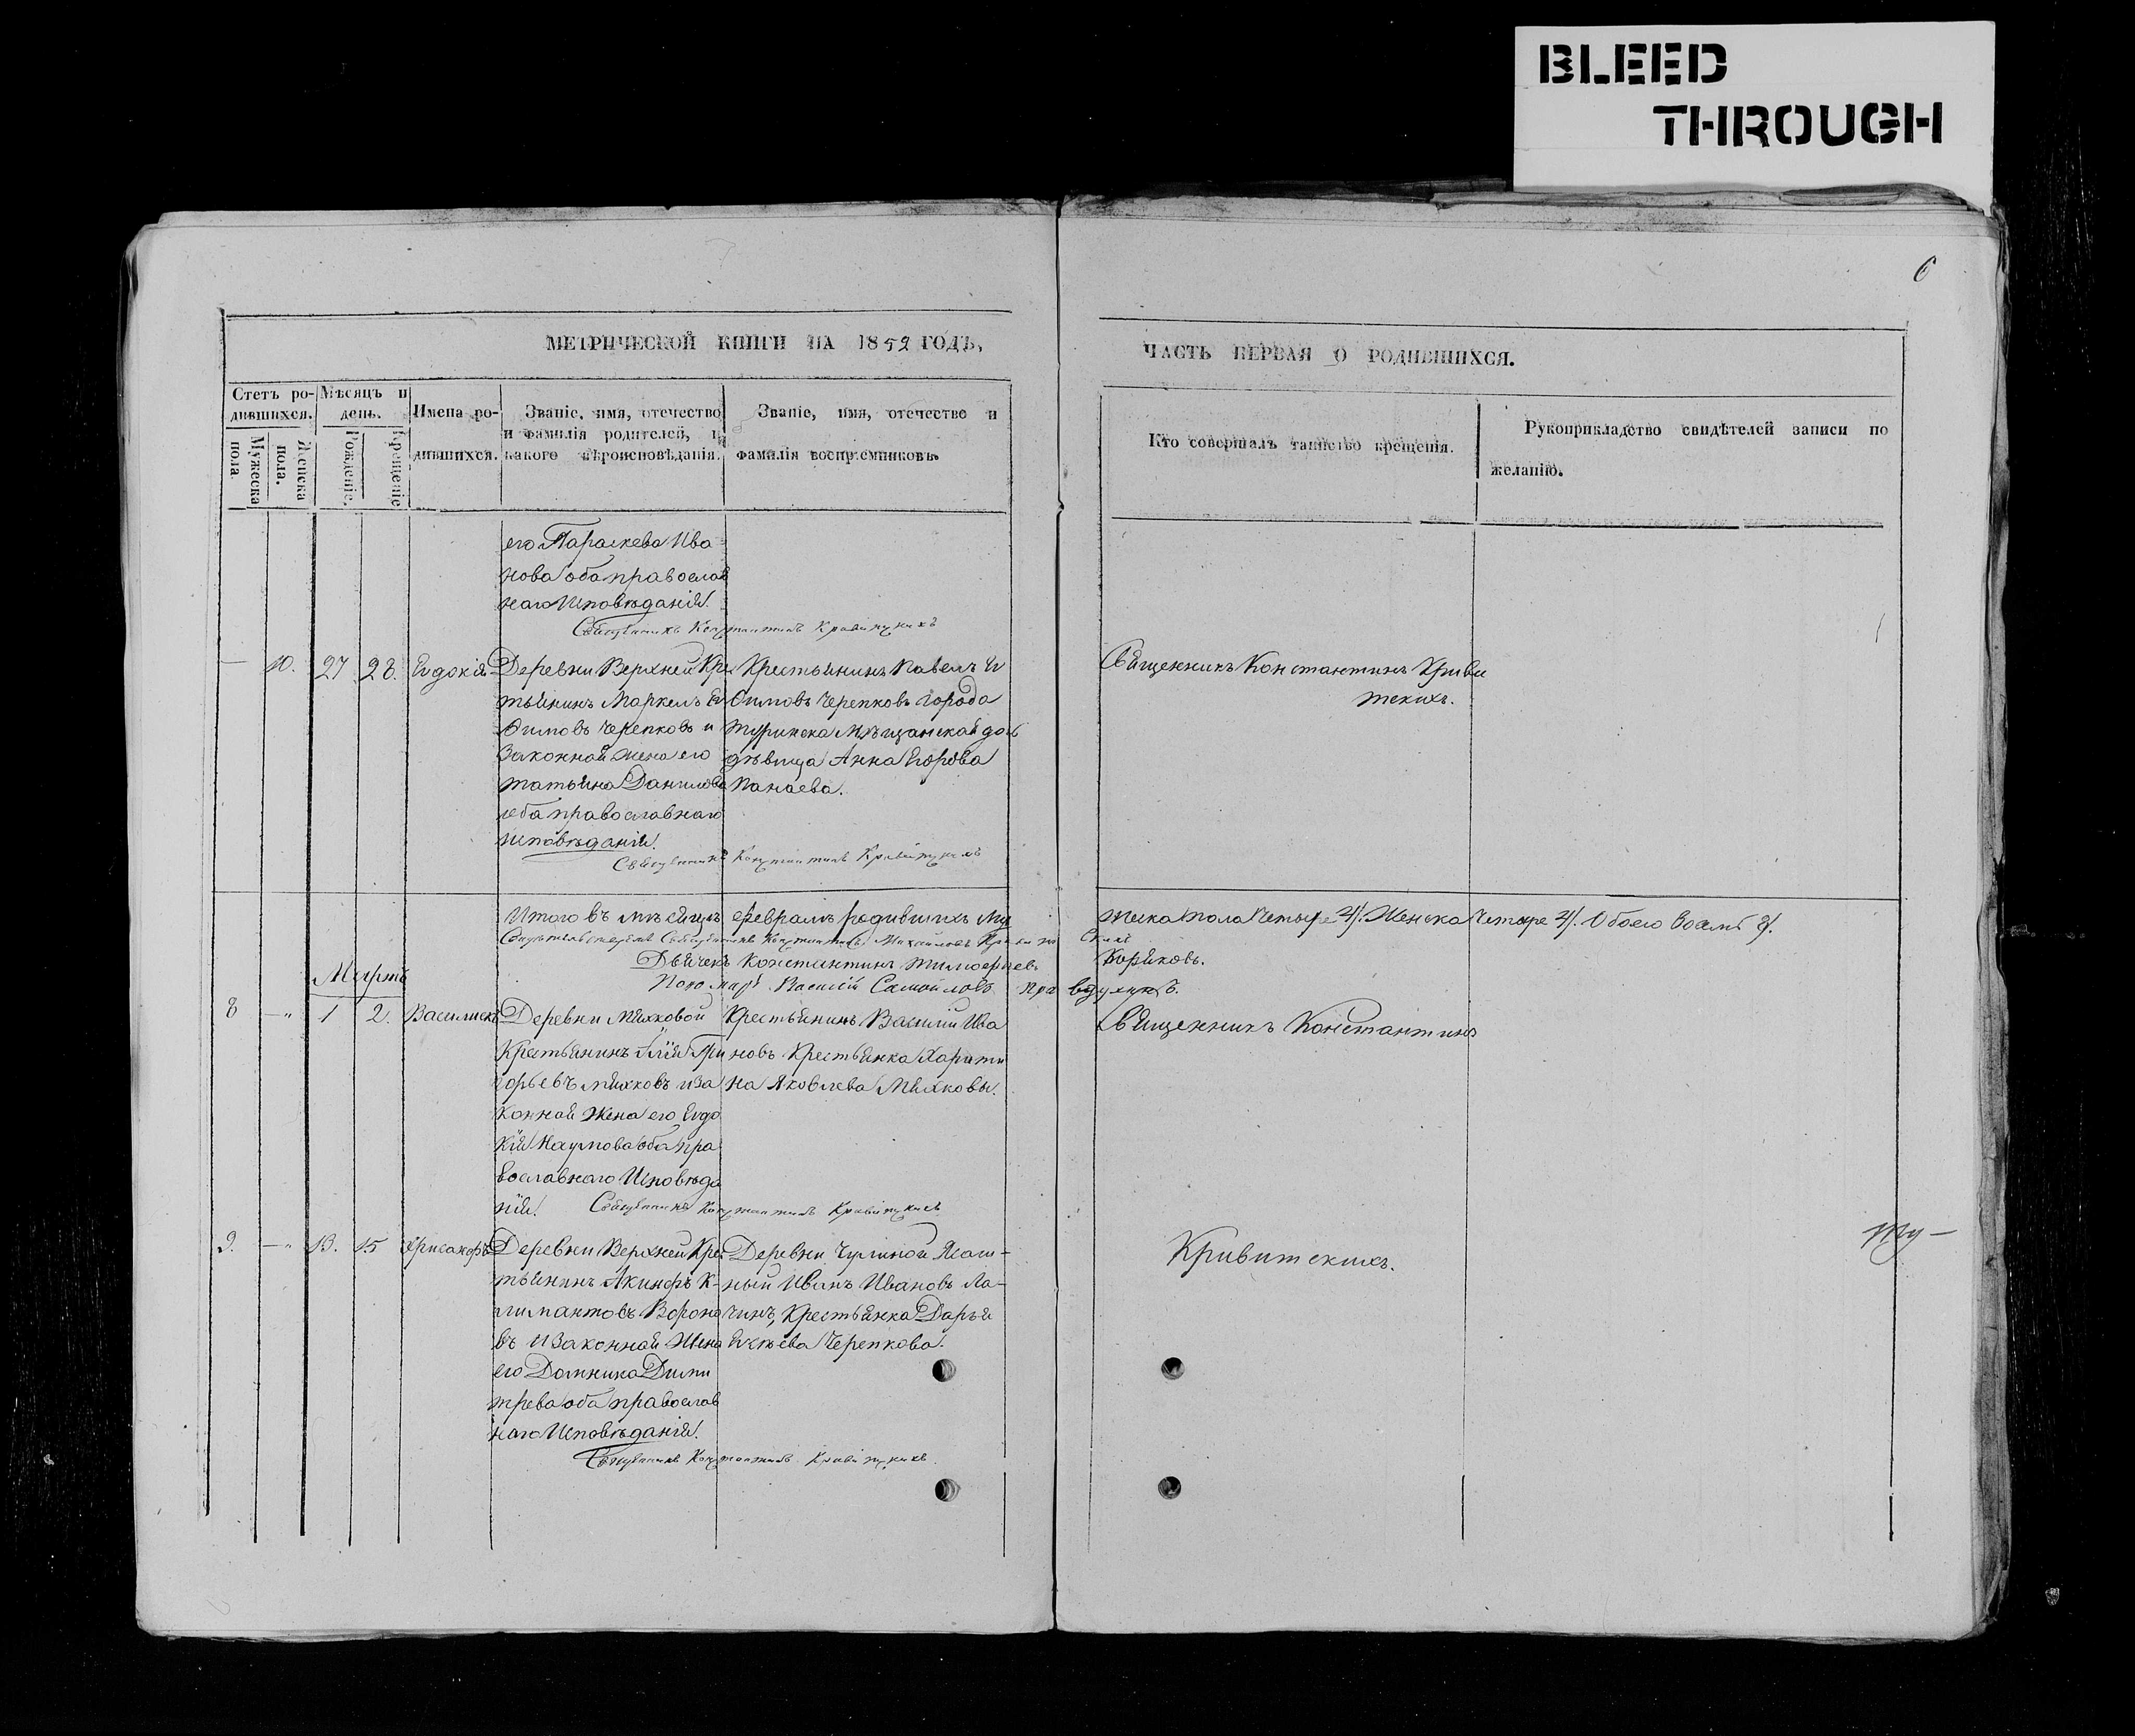 BLEED
THROUGH
6
МЕТРИЧЕСКОЙ КНИГИ НА 1852 ГОДЪ,
ЧАСТЬ ПЕРВАЯ О РОДИВШИХСЯ.
Счетъ ро-
дившихся.
Мужеска
пола
Женска
пола.
Мѣсяцъ и
день.
Рожденіе.
Крещеніе
Имена ро-
дившихся.
Званіе, имя, отечество
и фамилія родителей, и
какого вѣроисповѣданія.
Званіе, имя, отечество и
фамилія воспріемниковъ.
Кто совершалъ таинство крещенія.
Рукоприкладство свидѣтелей записи по
желанію.
его Параскева Ива
нова оба православ
наго Исповѣданія.
Священникъ Константинъ Кривитскихъ
— 10. 27 28. Евдокія
Деревни Верхней Кре
стьянинъ Маркелъ Ев
Ѳимовъ Черепковъ и
Законная жена его
Татьяна Данилова
оба православнаго
исповѣданія.
Священникъ Константинъ Кривитскихъ
Крестьянинъ Павелъ Ев
Ѳимовъ Черепковъ Города
Туринска Мѣщанская дочь
дѣвица Анна Егорова
Панаева.
Священникъ Константинъ Криви
тскихъ.
Итого въ мѣсяцѣ февралѣ родившихъ Му
жеска пола Четыре 4. Женска Четыре 4. Обоего Восемь 8.
Священникъ Константинъ Михаиловъ Кривит
скихъ
Дьячекъ Константинъ Тимофеевъ
Боряковъ.
Пономарь Василій Самойловъ
Мартъ
8 — 1 2. Василискъ
Деревни Мяхковой
Крестьянинъ Илія Гри
горьевъ Мяхковъ и За
конная Жена его Евдо
кія Наумова оба пра
вославнаго Исповѣда
нія. Священникъ Константинъ Кривитскихъ
Крестьянинъ Василій Ива
новъ. Крестьянка Харити
на Яковлева Мяхковы.
Священникъ Константинъ
9. — 13. 15 Хрисанфъ
Деревни Верхней Кре
стьянинъ Акинфъ К-
лимантовъ Вороно
въ и Законная Жена
его Домника Дими
трева оба православ
наго Исповѣданія.
Священникъ Константинъ Кривитскихъ
Деревни Чулиной Ясаш-
ный Иванъ Ивановъ Ла-
чинъ, Крестьянка Дарья
Евсѣева Черепкова.
Кривитскихъ.
Ту —